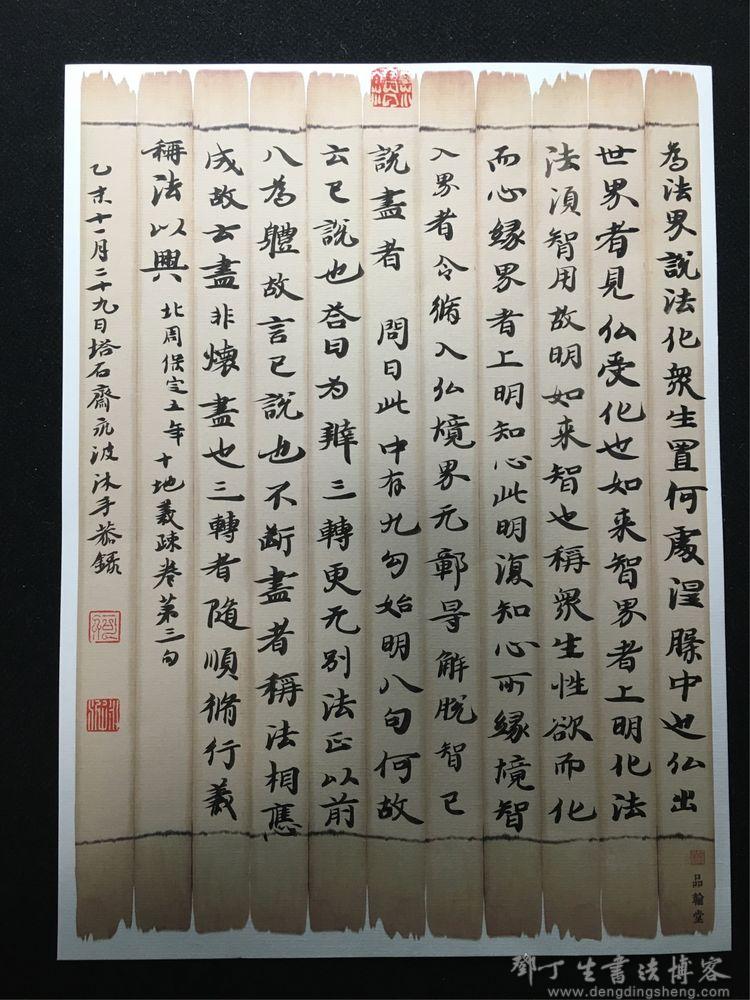 為法界說法化衆生置何處涅臊中也仏出
世界者見仏受化也如来智界者上明化法
法湏智用故明如来智也稱衆生性欲而化
而心緣界者上明知心此明復知心所緣境智
入界者令脩入仏境界无鄣导解脫智已
說盡者 問曰此中有九句始明八句何故
云已說也荅曰为辯三轉更无别法正以前
八為體故言已說也不斷盡者稱法相應
成故云盡非懷盡也三轉者隨順脩行義
稱法以興 北周保定五年十地義疎卷第三句
乙未十一月二十九日塔石齋 波沐手恭錄
品翰堂
鄧丁生書法博客
www.dengdingsheng.com